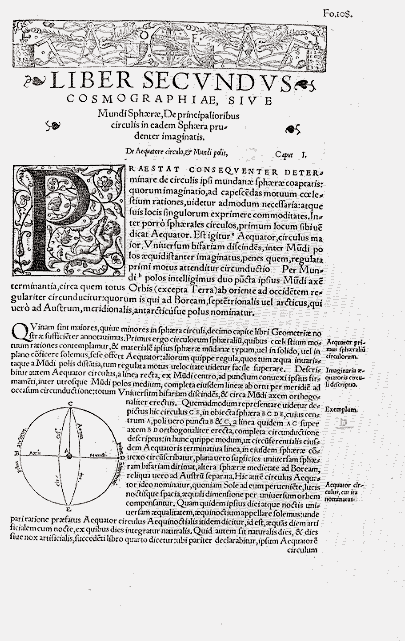 Fo.108.
LIBER SECVNDVS
COSMOGRAPHIAE, SIVE
Mundi Sphæræ, De principalioribus
circulis in eadem Sphæra pru-
denter imaginatis.
De Aequatore circulo, & Mundi polis, Caput I.
PRAESTAT CONSEQVENTER DETER-
minare de circulis ipsi mundanæ sphæræ coaptatis:
quorum imaginatio, ad capescēdas motuum cœle-
stium rationes, uidetur admodum necessaria: atque
suis locis singulorum exprimere commoditates. In-
ter porrò sphærales circulos, primum locum sibi uē-
dicat Aequator. Est igitur Aequator, circulus ma
ior, Vniuersum bifariam discindēs, inter Mūdi po
los æquidistanter imaginatus, penes quem, regulata
primi motus attenditur circunductio. Per Mun-
di polos intelligimus duo pūcta ipsius Mūdi axē
terminantia, circa quem totus Orbis (excepta Terra) ab oriente ad occidētem re-
gulariter circunducitur: quorum is qui ad Boream, septētrionalis uel arcticus, qui
uerò ad Austrum, meridionalis, antarcticusúe polus nominatur.
QVinam sint maiores, quiue minores in sphæra circuli, decimo capite libri Geometriæ no
stræ sufficiēter annotauimus. Primus ergo circulorum sphæraliū, quibus cœlestiū mo-
tuum rationes contemplamur, & materialē ipsius sphæræ mūdanæ typum, uel in solido, uel in
plano cōficere solemus, sese offert Aequator: aliorum quippe regula, quos tum æqua intersti-
taque à Mūdi polis distātia, tum regulata motus uelocitate uidetur facile superare. Descri-
bitur autem Aequator circulus, à linea recta, ex Mūdi centro, ad punctum conuexi ipsius fir-
mamēti, inter utrosque Mūdi polos medium, completa eiusdem lineæ ab ortu per meridiē ad
occasum circunductione: totum Vniuersum bifariam discindēs, & circa Mūdi axem orthogo-
naliter erectus. Quemadmodum repræsentare uidetur de-
pictus hic circulus
trum A, poli uero puncta B & C, a linea quidem A C super
axem B D orthogonaliter erecta, completa circunductione
descriptus: in hunc quippe modum, ut circunferentialis eiusdem
dem Aequatoris terminatiua linea, in eiusdem sphæræ cō-
uexo circūscribatur, plana uero superficies uniuersam sphæ-
ram bifariam dirimat, altera sphæræ medietate ad Boream,
reliqua uero ad Austrū separata. Hic autē circulus Aequa-
tor ideo nominatur, quoniam Sole ad eum perueniēte, lucis
noctisque spacia, æquali dimensione per uniuersum orbem
compensantur. Quam quidem ipsius diei atque noctis uni-
uersam æqualitatem, æquinoctium appellare solemus: unde
pari ratione præfatus Aequator circulus Aequinoctialis itidem dicitur, id est, æqualis diem arti
ficialem cum nocte, ex quibus dies integratur naturalis. Quid autem sit naturalis dies, & dies
siue nox artificialis, succedēti libro quarto dicetur: ubi pariter declarabitur, ipsum Aequatorē
circulum
Aequator pri-
mus sphæraliū
circulorum.
Imaginaria æ-
quatoris circu-
li descriptio.
Exemplum.
Aequator cir-
culus, cur ita
nominatur.